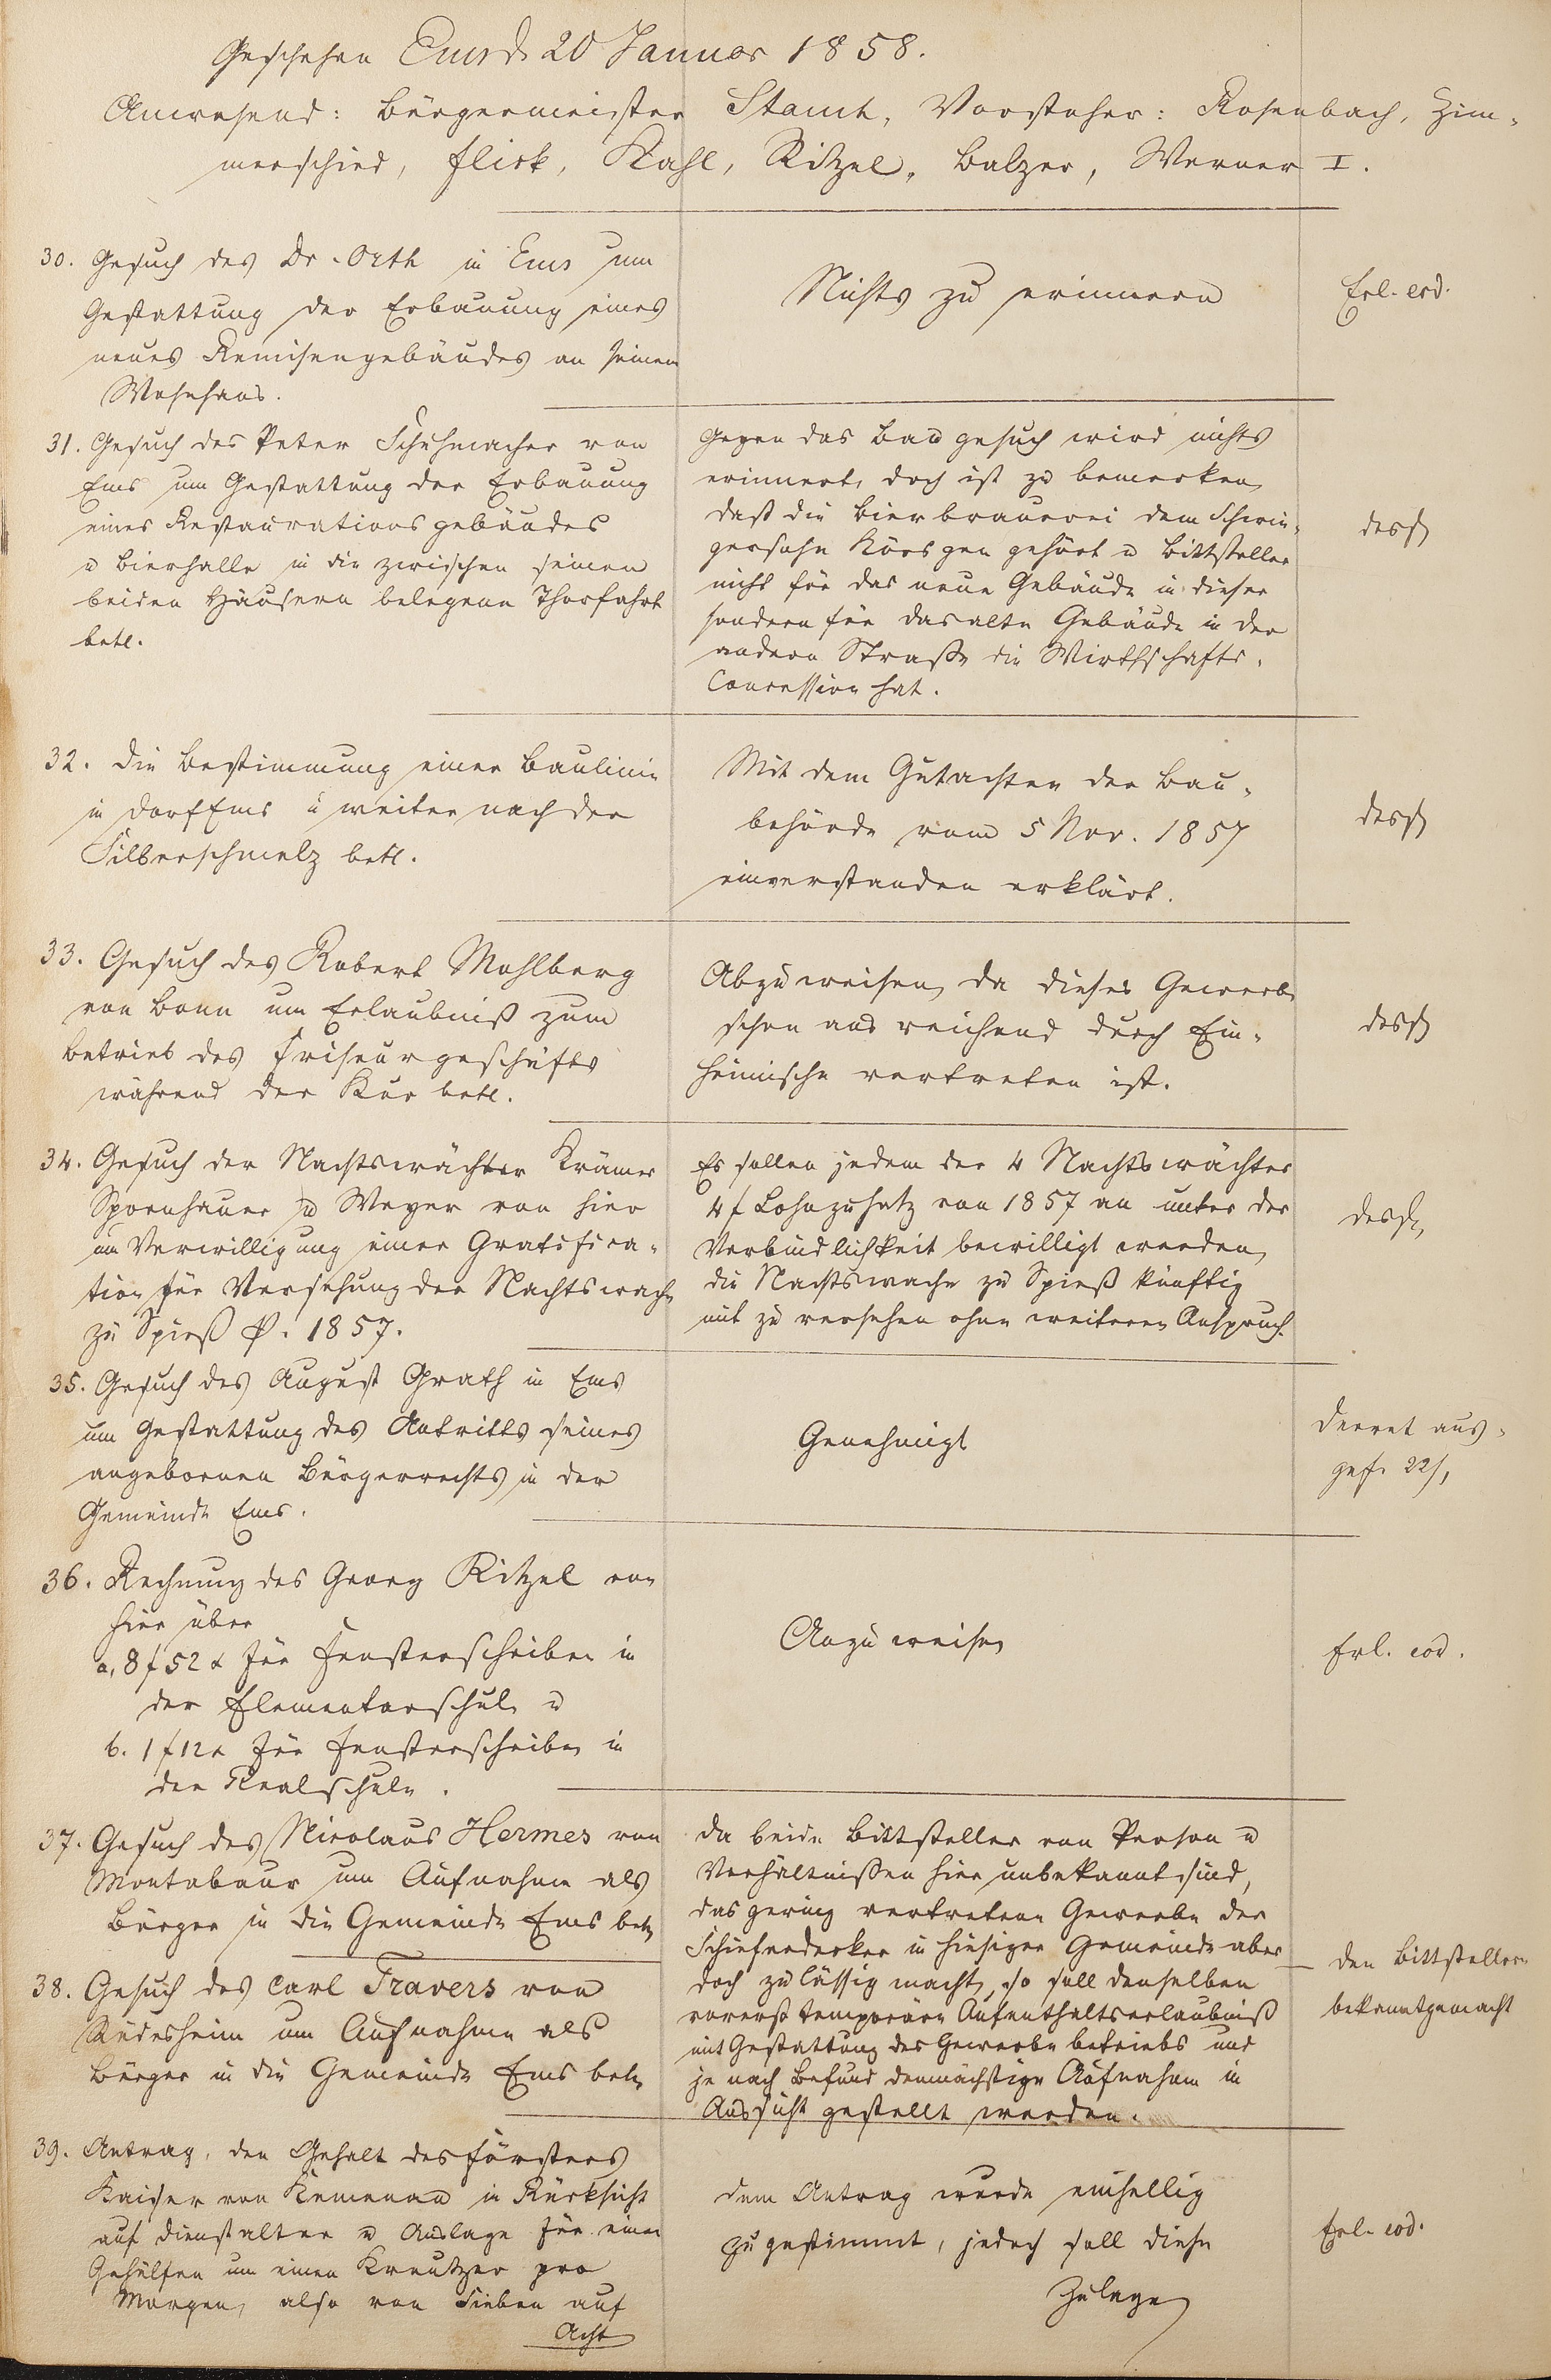 Geschehen Ems d. 20 Januar 1858.
Anwesend: Bürgermeister Stamm, Vorsteher: Rosenbach, Zim-
merschied, Flick, Kahl, Ritzel, Balzer, Werner I.
30. Gesuch des Dr. Orth in Ems um
Gestattung der Erbauung eines
neues Remisengebäudes an seinem
Wohnhaus.
Nichts zu erinnern
Erl. eod.
31. Gesuch des Peter Schuhmacher von
Ems um Gestattung der Erbauung
eines Restaurationsgebäudes
u Bierhalle in die zwischen seinen
beiden Häusern belegene Thorfahrt
betl.
Gegen das Baugesuch wird nichts
erinnert, doch ist zu bemerken,
daß die Bierbrauerei dem Schwie-
gersohn gehört u Bittsteller
nicht für das neue Gebäude in dieser
sondern für das alte Gebäude in der
andern Straße die Wirthschafts-
Concession hat.
desgl
32. Die Bestimmung einer Baulinie
in Dorf Ems u weiter nach der
Silberschmelz betl.
Mit dem Gutachten der Bau-
behörde vom 5 Nov. 1857
einverstanden erklärt.
desgl
33. Gesuch des Robert Mahlberg
von Bonn um Erlaubniß zum
Betrieb des Friseurgeschäfts
während der Kur betl.
Abzuweisen, da dieses Gewerbe
schon ausreichend durch Ein-
heimische vertreten ist.
desgl
34. Gesuch der Nachtswächter Krämer
Spornhauer u Weyer von hier
um Verwilligung einer Gratifica-
tion für Versehung der Nachtswache
zu Spieß p. 1857.
Es sollen jedem der 4 Nachtswächter
4 f Lohnzusatz von 1857 an unter der
Verbindlichkeit bewilligt werden,
die Nachtswache zu Spieß künftig
mit zu versehen ohne weiteren Anspruch.
desgl.
35. Gesuch des August Grath in Ems
um Gestattung des Antritts seines
angebornen Bürgerrechts in der
Gemeinde Ems.
Genehmigt
Decret aus-
gef. 22/1
36. Rechnung des Georg Ritzel von
hier über
a, 8 f 52 x für Fensterscheiben in
der Elementarschule u
b. 1 f 12 x für Fensterscheiben in
der Realschule.
Anzuweisen
Erl. eod.
37. Gesuch des Nicolaus Hermes von
Montabaur um Aufnahme als
Bürger in die Gemeinde Ems betr
38. Gesuch des Carl Travers von
Rüdesheim um Aufnahme als
Bürger in die Gemeinde Ems betr
Da beide Bittsteller von Person u
Verhältnißen hier unbekannt sind,
das gering vertretene Gewerbe der
Schieferdecker in hiesiger Gemeinde aber
doch zulässig macht, so soll denselben
vorerst temporäre Aufenthaltserlaubniß
mit Gestattung des Gewerbebetriebs und
je nach Befund demnächstige Aufnahme in
Aussicht gestellt werden.
Den Bittstellern
bekanntgemacht
39. Antrag, den Gehalt des Försters
Kaiser von Kemenau in Rücksicht
auf Dienstalter u Auslage für einen
Gehülfen um einen Kreutzer pro
Morgen, also von Sieben auf
Acht
Dem Antrag wurde einhellig
zugestimmt, jedoch soll diese
Zulage
Erl. eod.